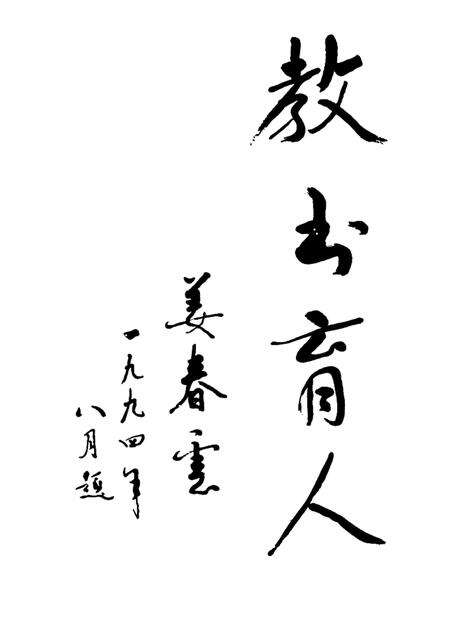 教书育人
姜春雲
一九九四年
八月题